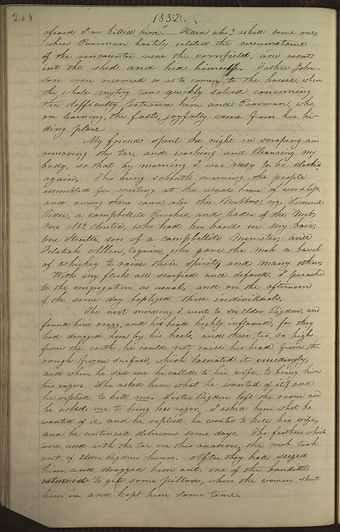 208
1832.
afraid I've killed him." "Killed who?" asked some one;
when Poorman hastily related the circumstance
of the rencounter near the cornfield, and went
into the shed and hid himself. Father John-
son soon recovered so as to come to the house, when
the whole mystery was quickly solved concerning
the difficulty between him and Poorman, who,
on learning the facts, joyfully came from his hi-
ding place.
My friends spent the night in scraping and
removing the tar, and washing and cleansing my
body, so that by morning I was ready to be clothed
again. This being sabbath morning, the people
assembled for meeting at the usual hour of worship,
and among those came also the mobbers; viz, Simonds
Rider, a campbellite preacher, and leader of the mob;
One McClentic, who had his hands in my hair;
one Streeter, son of a campbellite minister; and
Felatiah Allen, Esquire, who gave the mob a barrel
of whiskey to raise their spirits; and many others.
With my flesh all scarified and defaced, I preached
to the congregation as usual, and on the afternoon
of the same day baptized three individuals.
The next morning I went to see elder Rigdon, and
found him crazy, and his head highly inflamed, for they
had dragged him by his heels, and those, too, so high
from the earth he could not raise his head from the
rough frozen surface, which lacerated it exceedingly;
and when he saw me he called to his wife to bring him
his razor. She asked him what he wanted of it? and
he replied to kill me. Sister Rigdon left the room and
he asked me to bring his razor. I asked him what he
wanted of it, and he replied he wanted to kill his wife,
and he continued delirious some days. The feathers which
were used with the tar on this occasion, the mob took
out of Elder Rigdon's house. After they had seized
him, and dragged him out, one of the banditti
returned to get some pillows, when the women shut
him in and kept him some time.